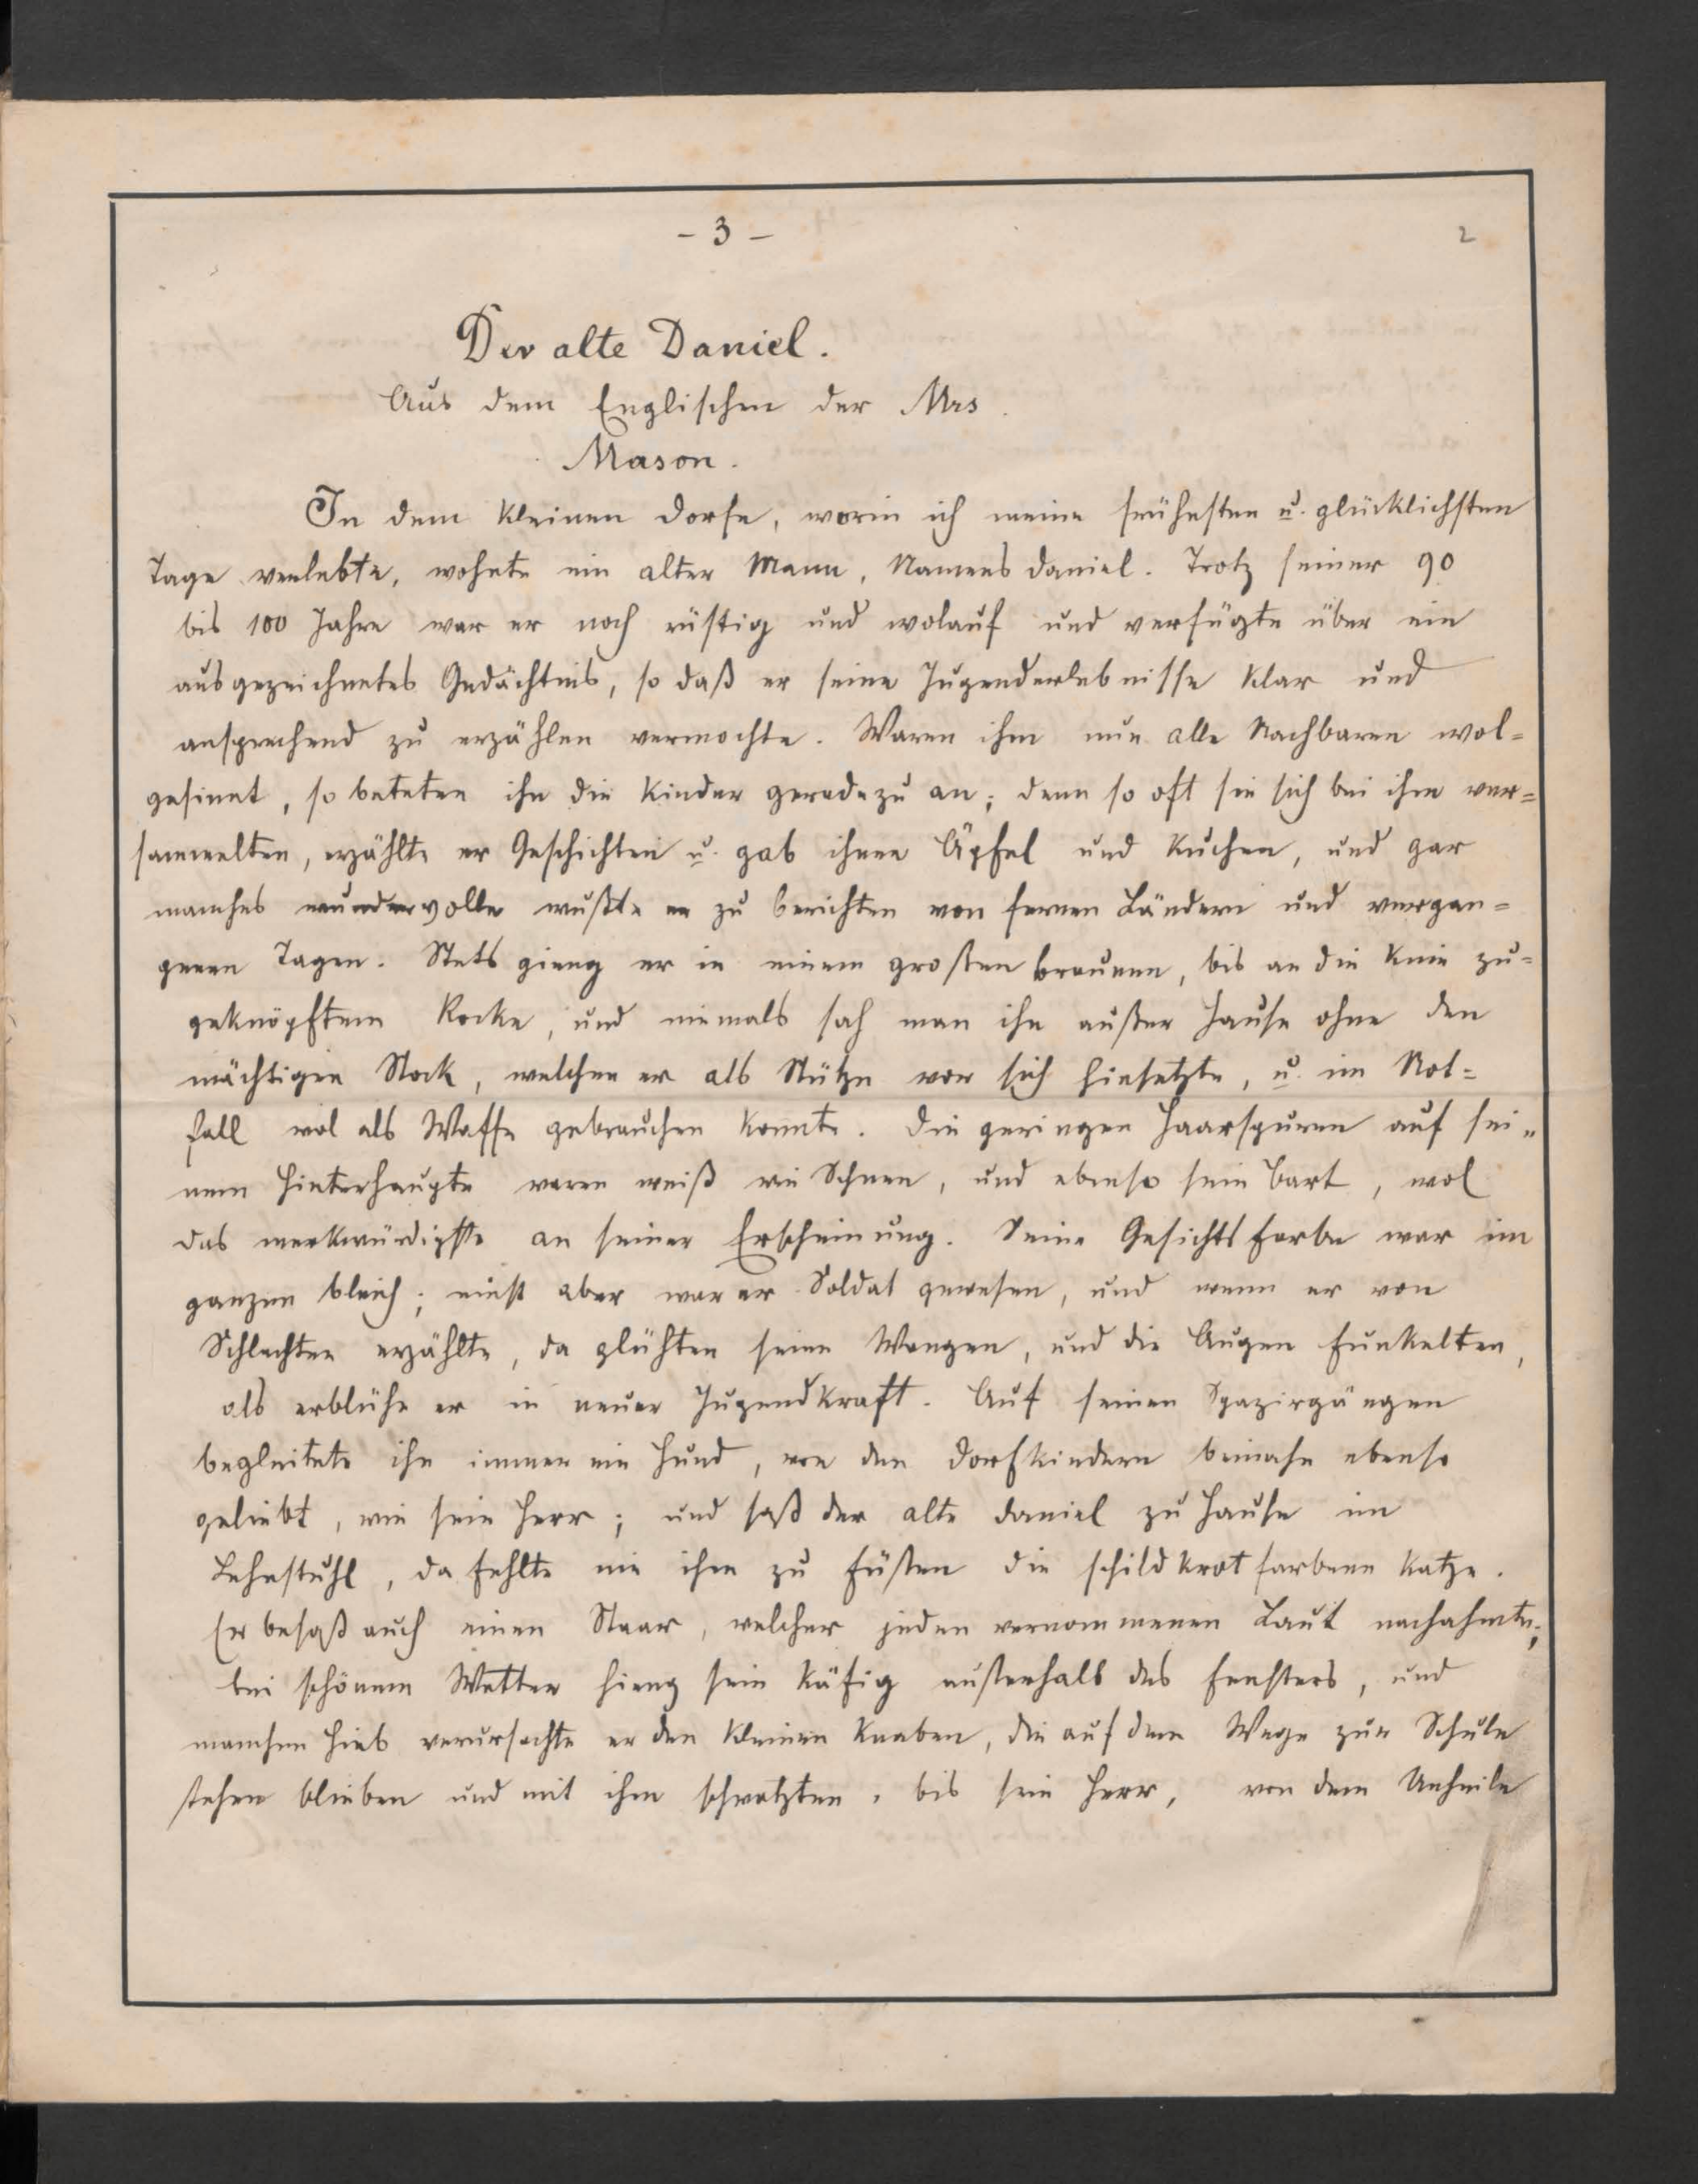 - 3 -
2
Der alte Daniel.
Aus dem Englischen der Mrs.
Mason.
In dem kleinen Dorfe, worin ich meine frühesten u. glücklichsten
Tage verlebte, wohnte ein alter Mann, Namens Daniel. Trotz seiner 90
bis 100 Jahre war er noch rüstig und wolauf und verfügte über ein
ausgezeichnetes Gedächtnis, so daß er seine Jugenderlebnisse klar und
ansprechend zu erzählen vermochte. Waren ihm nun alle Nachbaren wol=
gesinnt, so beteten ihn die Kinder geradezu an; denn so oft sie sich bei ihm ver=
sammelten, erzählte er Geschichten u. gab ihnen Äpfel und Kuchen, und gar
manches wundervolle wußte er zu berichten von fernen Ländern und vergan=
genen Tagen. Stets gieng er in einem großen braunen, bis an die Knie zu=
geknöpftem Rocke, und niemals sah man ihn außer Hause ohne den
mächtigen Stock, welchen er als Stütze vor sich hinsetzte, u. im Not=
fall wol als Waffe gebrauchen konnte. Die geringen Haarspuren auf sei=
nem Hinterhaupte waren weiß wie Schnee, und ebenso sein Bart, wol
das merkwürdigste an seiner Erscheinung. Seine Gesichtsfarbe war im
ganzen bleich; einst aber war er Soldat gewesen, und wenn er von
Schlachten erzählte, da glühten seine Wangen, und die Augen funkelten,
als erblühe er in neuer Jugendkraft. Auf seinen Spazirgängen
begleitete ihn immer ein Hund, von den Dorfkindern beinahe ebenso
geliebt, wie sein Herr; und saß der alte Daniel zu Hause im
Lehnstuhl, da fehlte nie ihm zu Füßen die schildkrotfarbene Katze.
Er besaß auch einen Staar, welcher jeden vernommenen Laut nachahmte;
bei schönem Wetter hieng sein Käfig außerhalb des Fensters, und
manchen Hieb verursachte er den kleinen Knaben, die auf dem Wege zur Schule
stehen blieben und mit ihm schwatzten, bis sein Herr, von dem Unheile